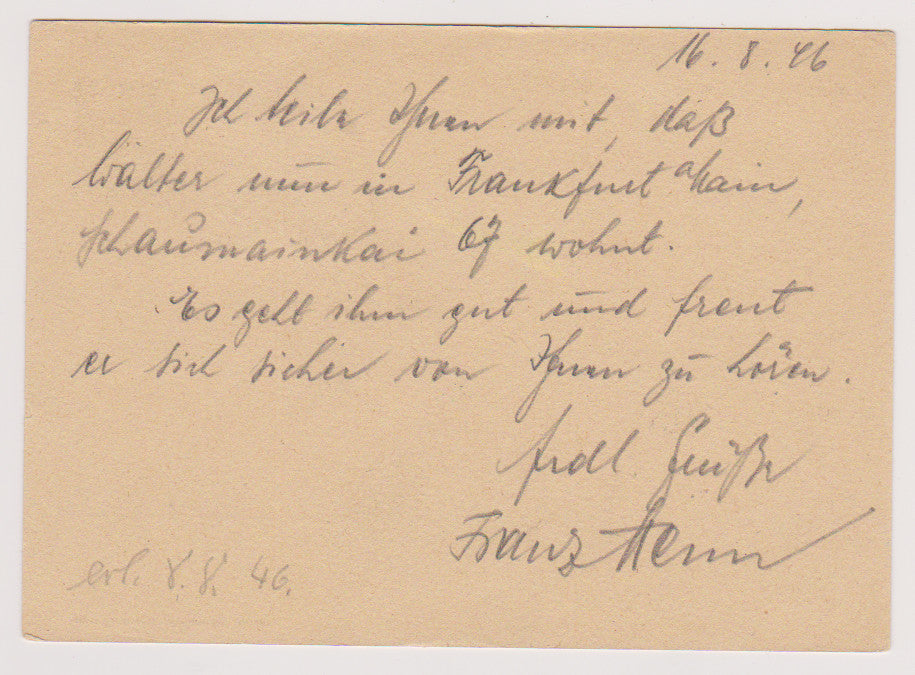 16. 8. 46
Ich teile Ihnen mit, daß
Walter nun in Frankfurt a/Main,
Schaumainkai 67 wohnt.
Es geht ihm gut und freut
er sich sicher von Ihnen zu hören.
frdl. Grüße
Franz Henn
erl. 8. 8. 46.